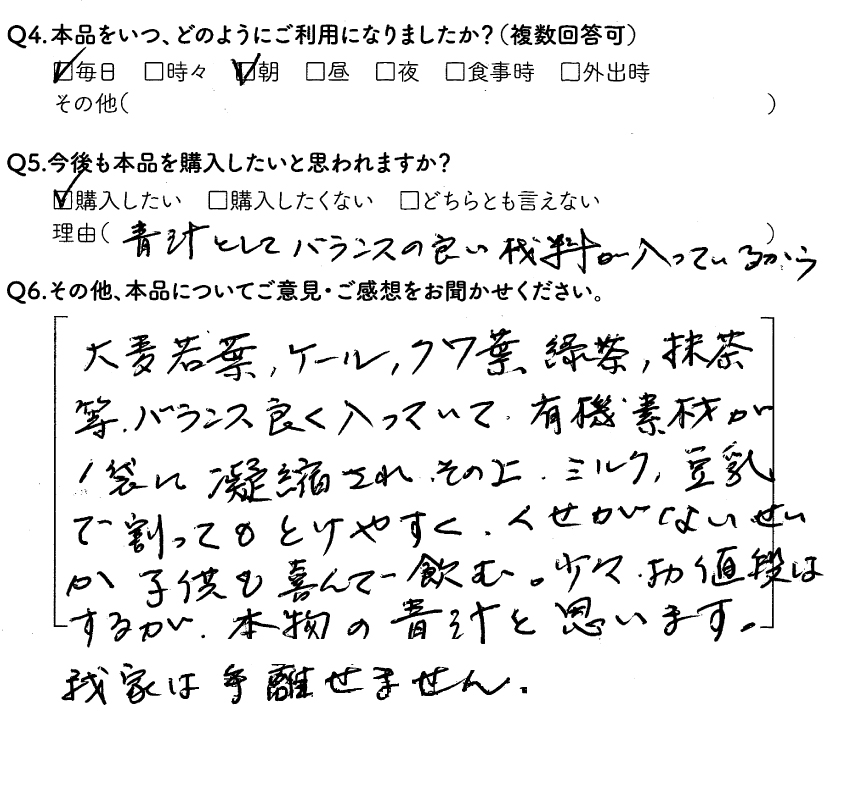 Q4.本品をいつ、どのようにご利用になりましたか?(複数回答可)
☑毎日 □時々 ☑朝 □昼 □夜 □食事時 □外出時
その他( )
Q5.今後も本品を購入したいと思われますか?
☑購入したい □購入したくない □どちらとも言えない
理由( 青汁としてバランスの良い材料が入っているから )
Q6.その他、本品についてご意見・ご感想をお聞かせください。
大麦若葉,ケール,クワ葉、緑茶,抹茶
等、バランス良く入っていて、有機素材が
1袋に凝縮され、その上、ミルク,豆乳
で割ってもとけやすく、くせがないせい
か子供も喜んで飲む。少々、お値段は
するが、本物の青汁と思います。
我家は手離せません.